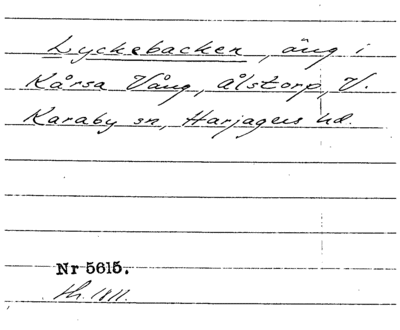 Lyckebacken, äng i
Kårsa Vång, Ålstorp, V.
Karaby sn, Harjagers hd.
Nr 5615.
1811.